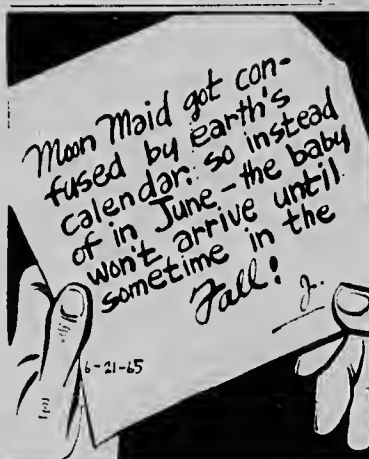 Moon Maid got con-
fused by earth's
calendar: so instead
of in June - the baby
won't arrive until
sometime in the
Fall!
J.
6-21-65